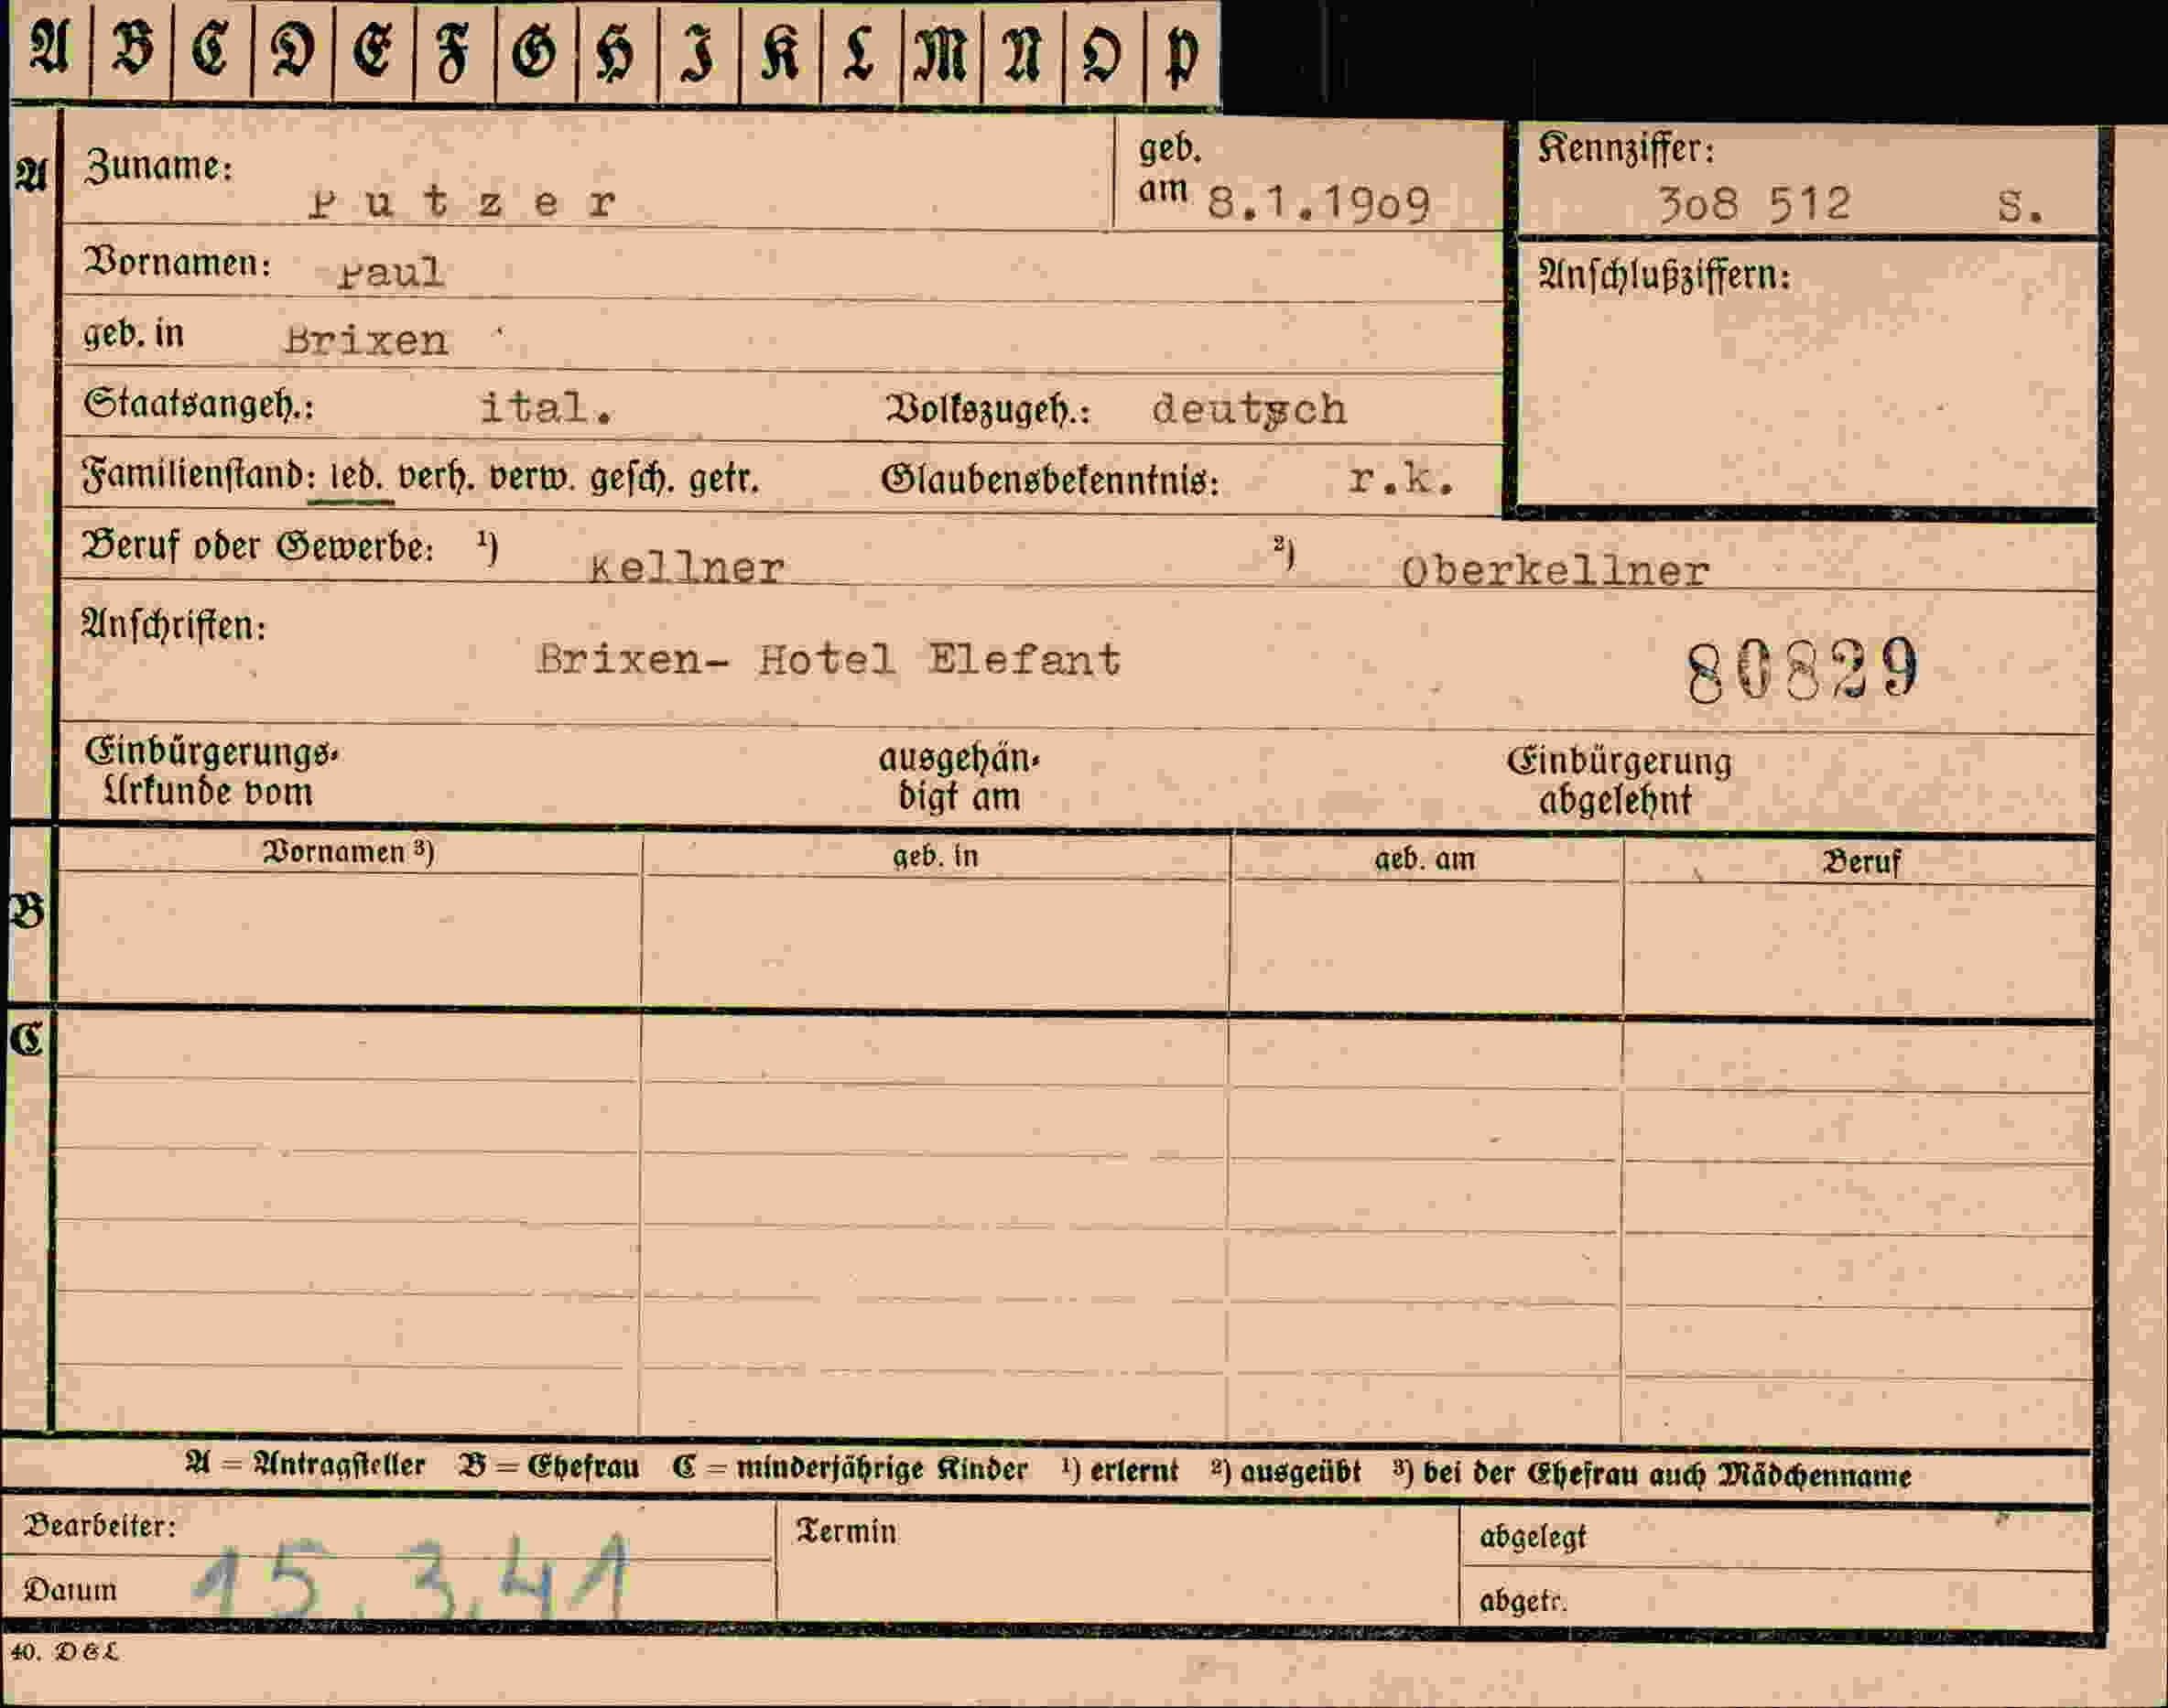 A B C D E F G H I K L M N O P
A Zuname: Putzer geb. am 8.1.1909 Kennziffer: 308 512 S.
Vornamen: Paul Anschlußziffern:
geb. in Brixen
Staatsangeh.: ital. Volkszugeh.: deutsch
Familienstand: led. verh. verw. gesch. getr. Glaubensbekenntnis: r.k.
Beruf oder Gewerbe: ¹) Kellner ²) Oberkellner
Anschriften:
Brixen- Hotel Elefant 80829
Einbürgerungs- ausgehän- Einbürgerung
Urkunde vom digt am abgelehnt
Vornamen ³) geb. in geb. am Beruf
B
C
A = Antragsteller B = Ehefrau C = minderjährige Kinder ¹) erlernt ²) ausgeübt ³) bei der Ehefrau auch Mädchenname
Bearbeiter: Termin abgelegt
Datum 15.3.41 abgetr.
40. DGL